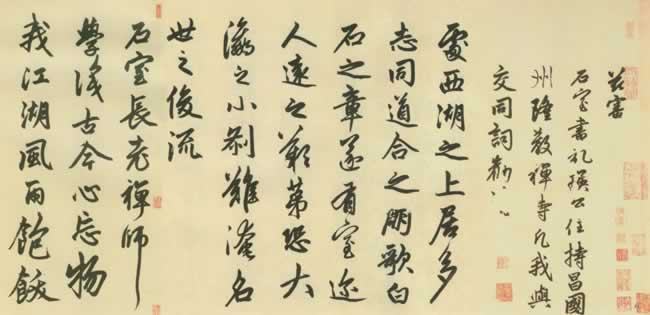 茲審
石室書記瑛公住持昌國
州隆教禪寺凡我與
交同詞勸
處西湖之上居多
志同道合之朋歌白
石之章遂有室邇
人遠之歎第恐大
瀛之小剎難淹名
世之俊流
石室長老禪師
學識古今心忘物
我江湖風雨飽飫